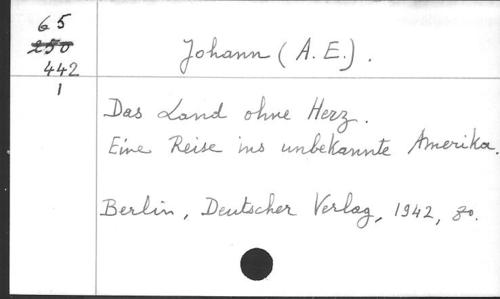 65
250
442
1
Johann (A. E.).
Das Land ohne Herz.
Eine Reise ins unbekannte Amerika.
Berlin, Deutscher Verlag, 1942, 8o.